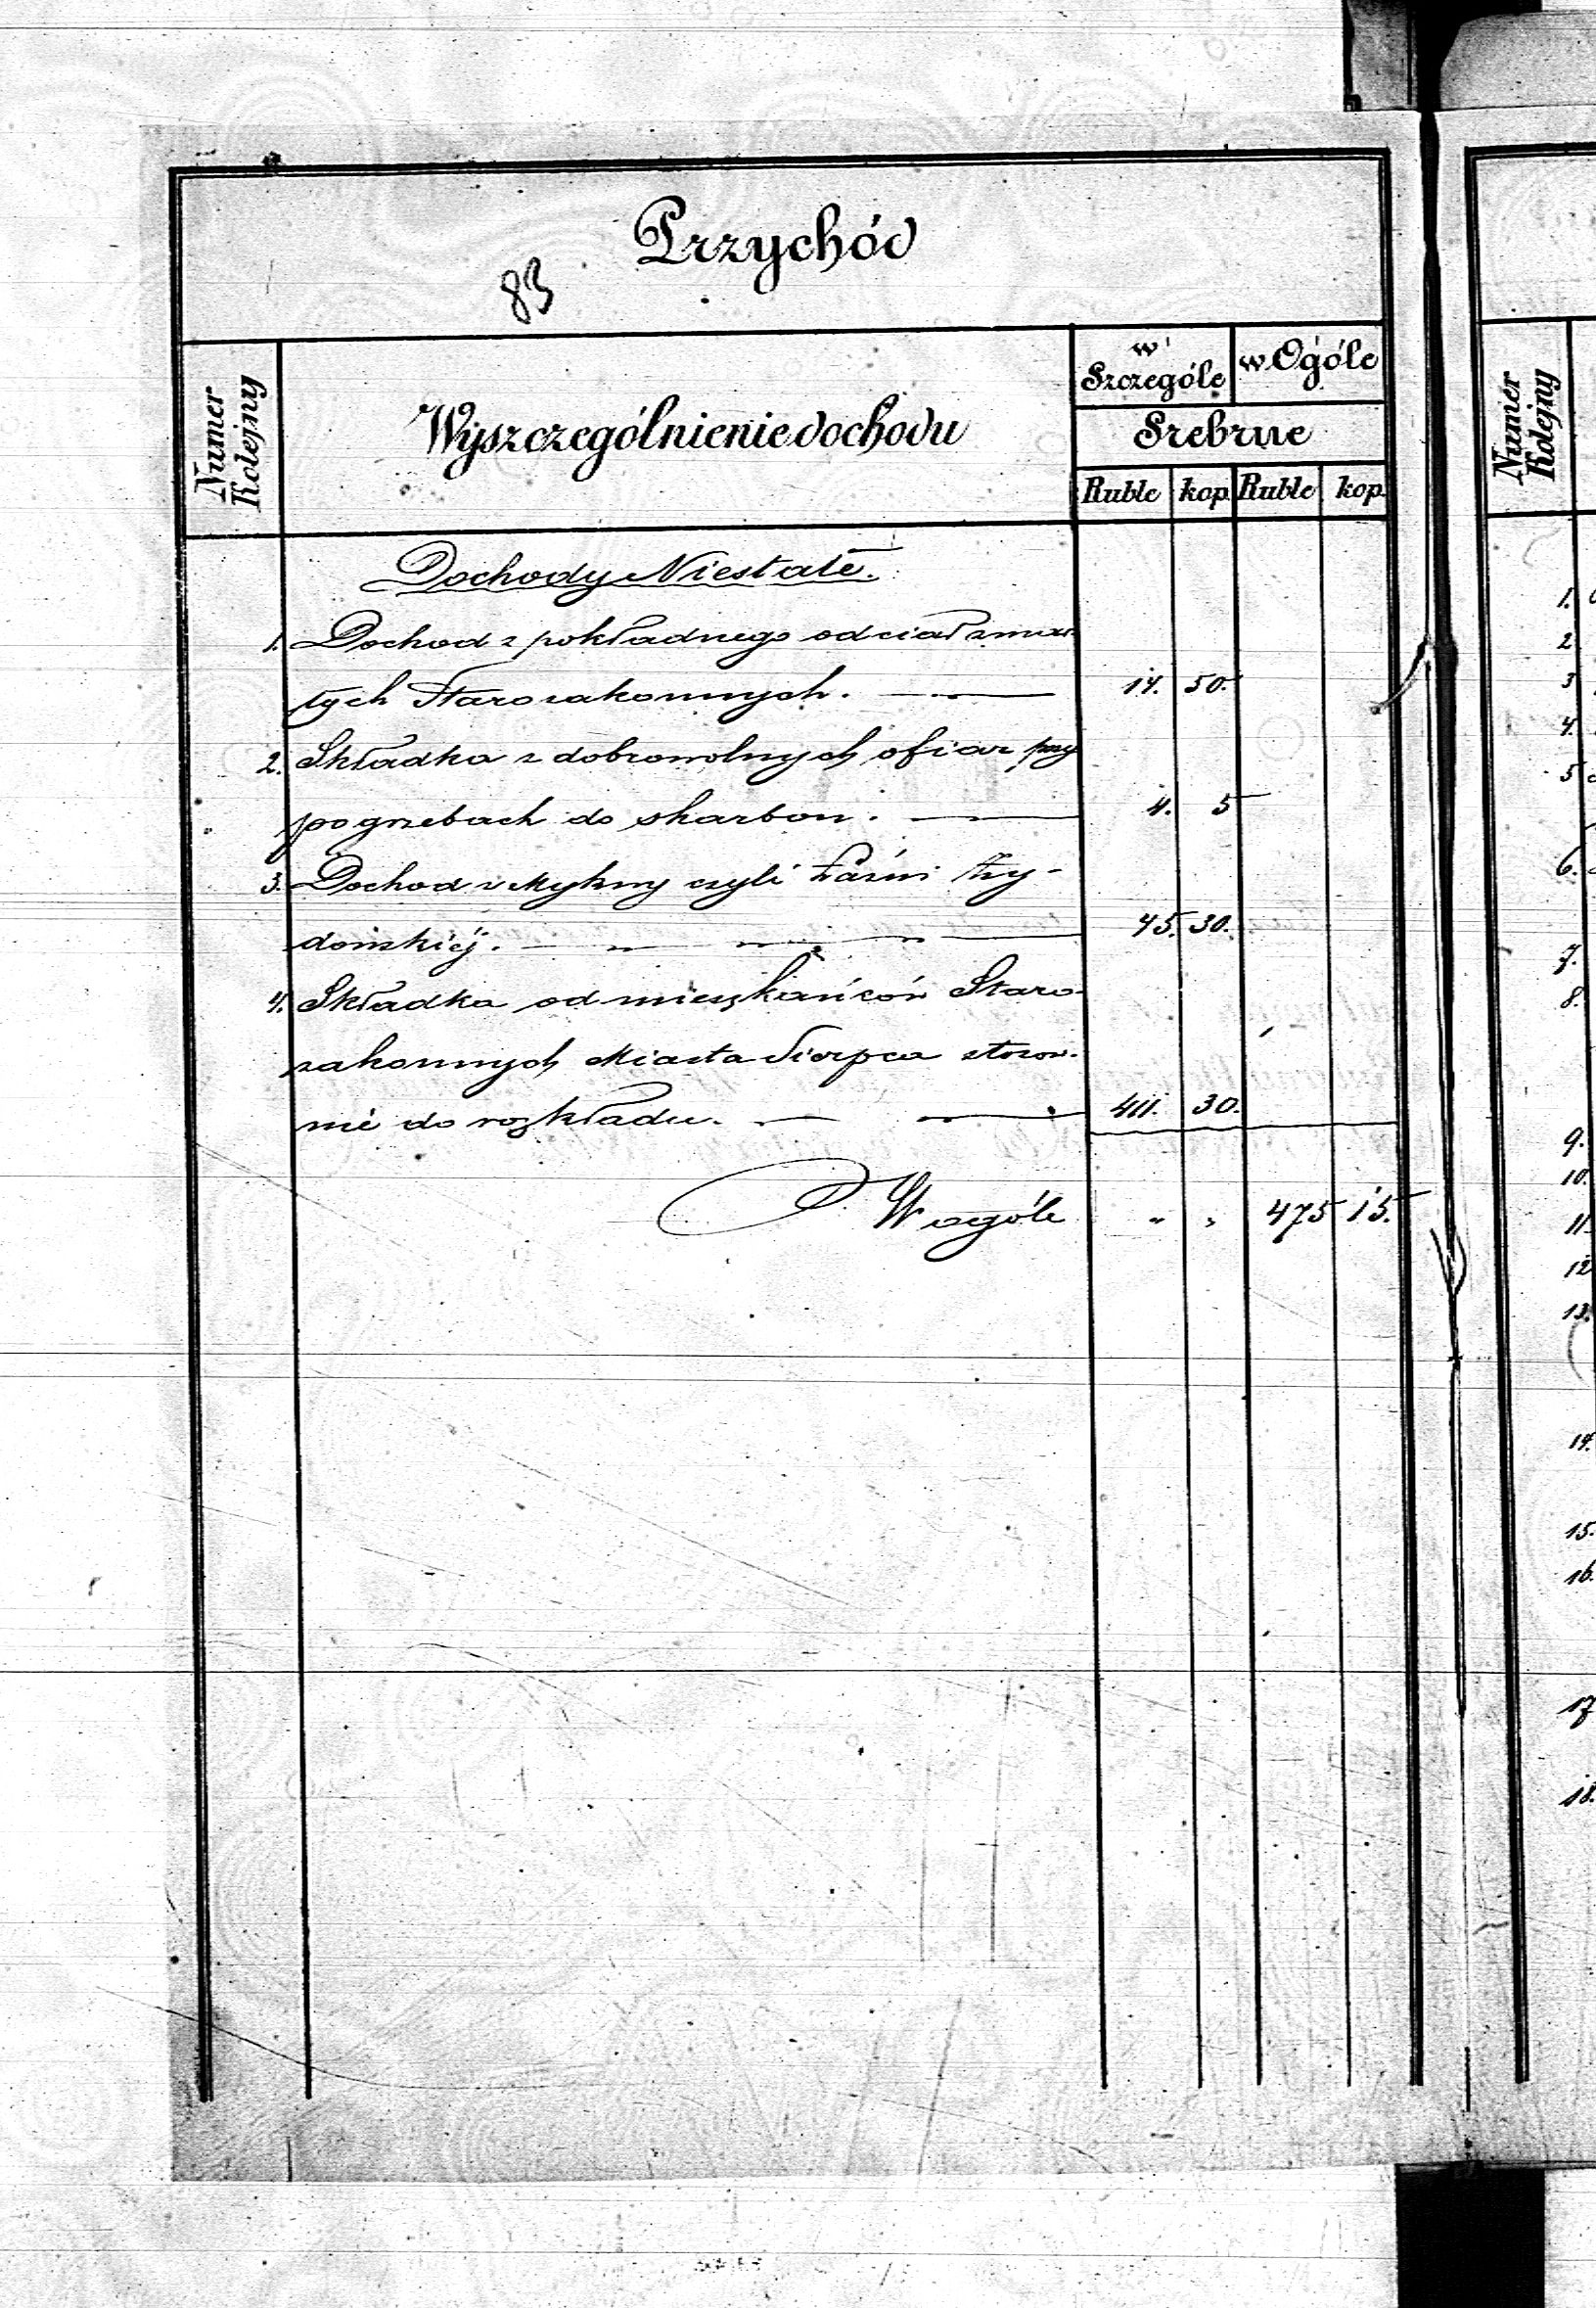 Przychód
83
Numer Kolejny
Wyszczególnienie dochodu
w Szczególe
w Ogóle
Srebrne
Ruble kop. Ruble kop.
Dochody Niestałe.
1. Dochod z pokładnego od ciał zmar-
tych Starozakonnych. 14. 50.
2. Składka z dobrowolnych ofiar przy
pogrzebach do skarbon. 4. 5
3. Dochod z Mykwy czyli Łaźni Ży-
dowskiéj. 45. 30.
4. Składka od mieszkańców Staro-
zakonnych Miasta Sierpca stosow-
nie do rozkładu. 411. 30.
W ogóle " " 475 15.
Numer Kolejny
1.
2
3
4.
5
6.
7.
8.
9.
10.
11.
12
13.
14.
15.
16.
17
18.